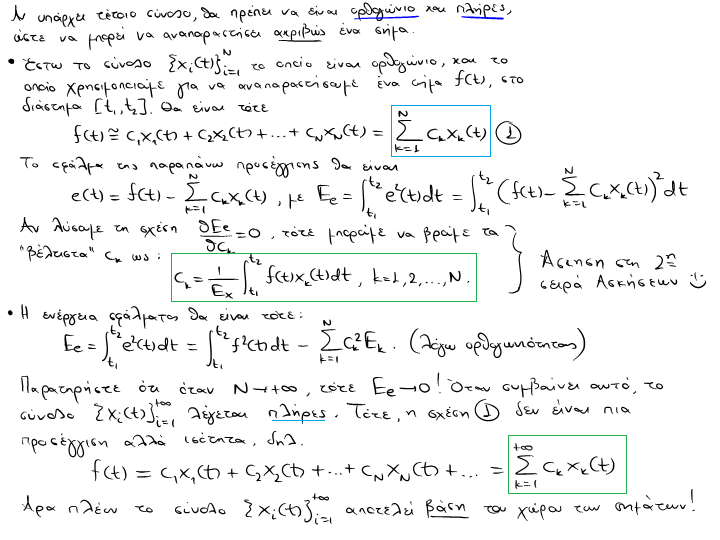 Αν υπάρχει τέτοιο σύνολο, θα πρέπει να είναι ορθογώνιο και πλήρες,
ώστε να μπορεί να αναπαραστήσει ακριβώς ένα σήμα.
• Έστω το σύνολο {x_i(t)}_{i=1}^{N} το οποίο είναι ορθογώνιο, και το
οποίο χρησιμοποιούμε για να αναπαραστήσουμε ένα σήμα f(t), στο
διάστημα [t_1, t_2]. Θα είναι τότε
f(t) ≅ c_1x_1(t) + c_2x_2(t) + ... + c_Nx_N(t) = Σ_{k=1}^{N} c_k x_k(t) ①
Το σφάλμα της παραπάνω προσέγγισης θα είναι
e(t) = f(t) - Σ_{k=1}^{N} c_k x_k(t), με E_e = ∫_{t_1}^{t_2} e²(t)dt = ∫_{t_1}^{t_2} (f(t) - Σ_{k=1}^{N} c_k x_k(t))² dt
Αν λύσουμε τη σχέση ∂E_e/∂c_k = 0, τότε μπορούμε να βρούμε τα
"βέλτιστα" c_k ως: c_k = 1/E_x ∫_{t_1}^{t_2} f(t)x_k(t)dt, k=1,2,...,N.
Άσκηση στη 2η
σειρά Ασκήσεων ☺
• Η ενέργεια σφάλματος θα είναι τότε:
E_e = ∫_{t_1}^{t_2} e²(t)dt = ∫_{t_1}^{t_2} f²(t)dt - Σ_{k=1}^{N} c_k² E_k. (λόγω ορθογωνιότητας)
Παρατηρήστε ότι όταν N→+∞, τότε E_e→0! Όταν συμβαίνει αυτό, το
σύνολο {x_i(t)}_{i=1}^{+∞} λέγεται πλήρες. Τότε, η σχέση ① δεν είναι πια
προσέγγιση αλλά ισότητα, δηλ.
f(t) = c_1x_1(t) + c_2x_2(t) + ... + c_Nx_N(t) + ... = Σ_{k=1}^{+∞} c_k x_k(t)
Άρα πλέον το σύνολο {x_i(t)}_{i=1}^{+∞} αποτελεί βάση του χώρου των σημάτων!